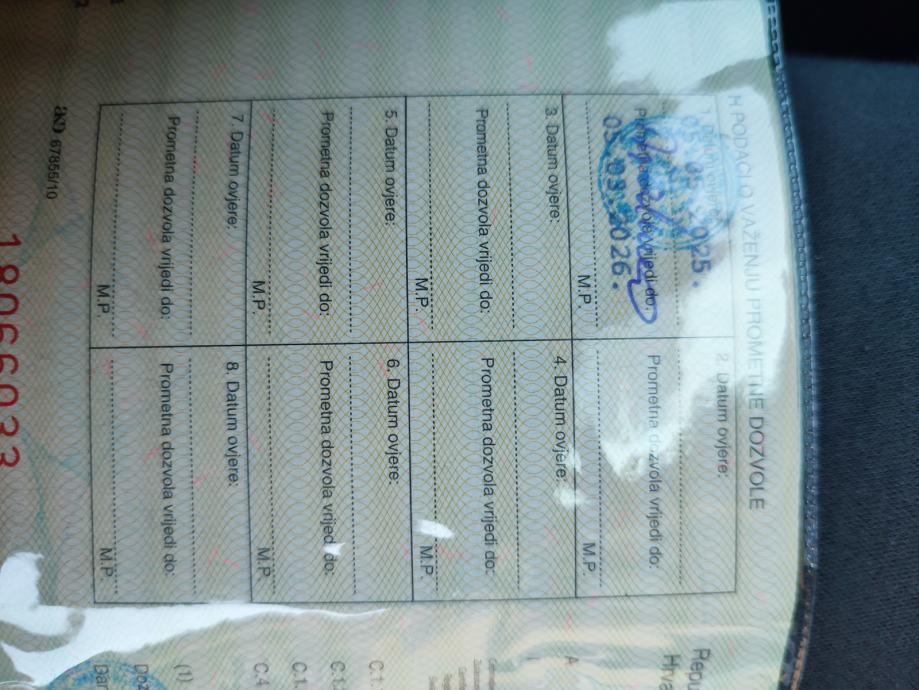 H PODACI O VAŽENJU PROMETNE DOZVOLE
1. Datum ovjere:
05. 05. 2025.
Prometna dozvola vrijedi do:
05. 03. 2026.
M.P.
2. Datum ovjere:
Prometna dozvola vrijedi do:
M.P.
3. Datum ovjere:
Prometna dozvola vrijedi do:
M.P.
4. Datum ovjere:
Prometna dozvola vrijedi do:
M.P.
5. Datum ovjere:
Prometna dozvola vrijedi do:
M.P.
6. Datum ovjere:
Prometna dozvola vrijedi do:
M.P.
7. Datum ovjere:
Prometna dozvola vrijedi do:
M.P.
8. Datum ovjere:
Prometna dozvola vrijedi do:
M.P.
AKD 67855/10
18066033
Repu
Hrva
A
C.1.
C.1.
C.1.
C.4
(1)
Doz
Dat